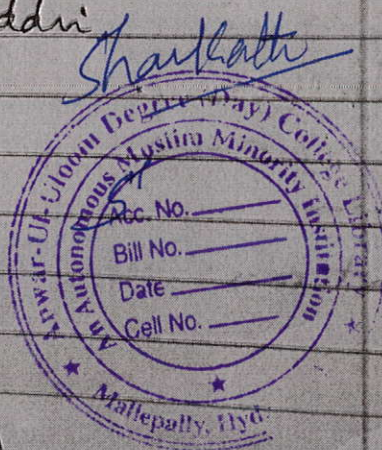 ddri
Anwar-Ul-Uloom Degree (Day) College Library
An Autonomous Muslim Minority Institution
Acc. No.
Bill No.
Date
Cell No.
Mallepally, Hyd.